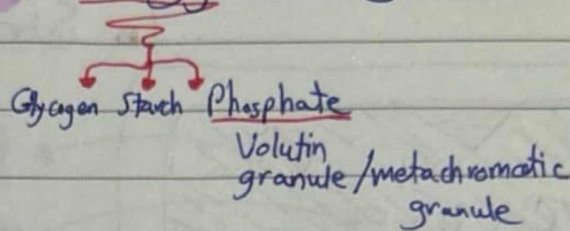 Glycogen Starch Phosphate
Volutin
granule/metachromatic
granule